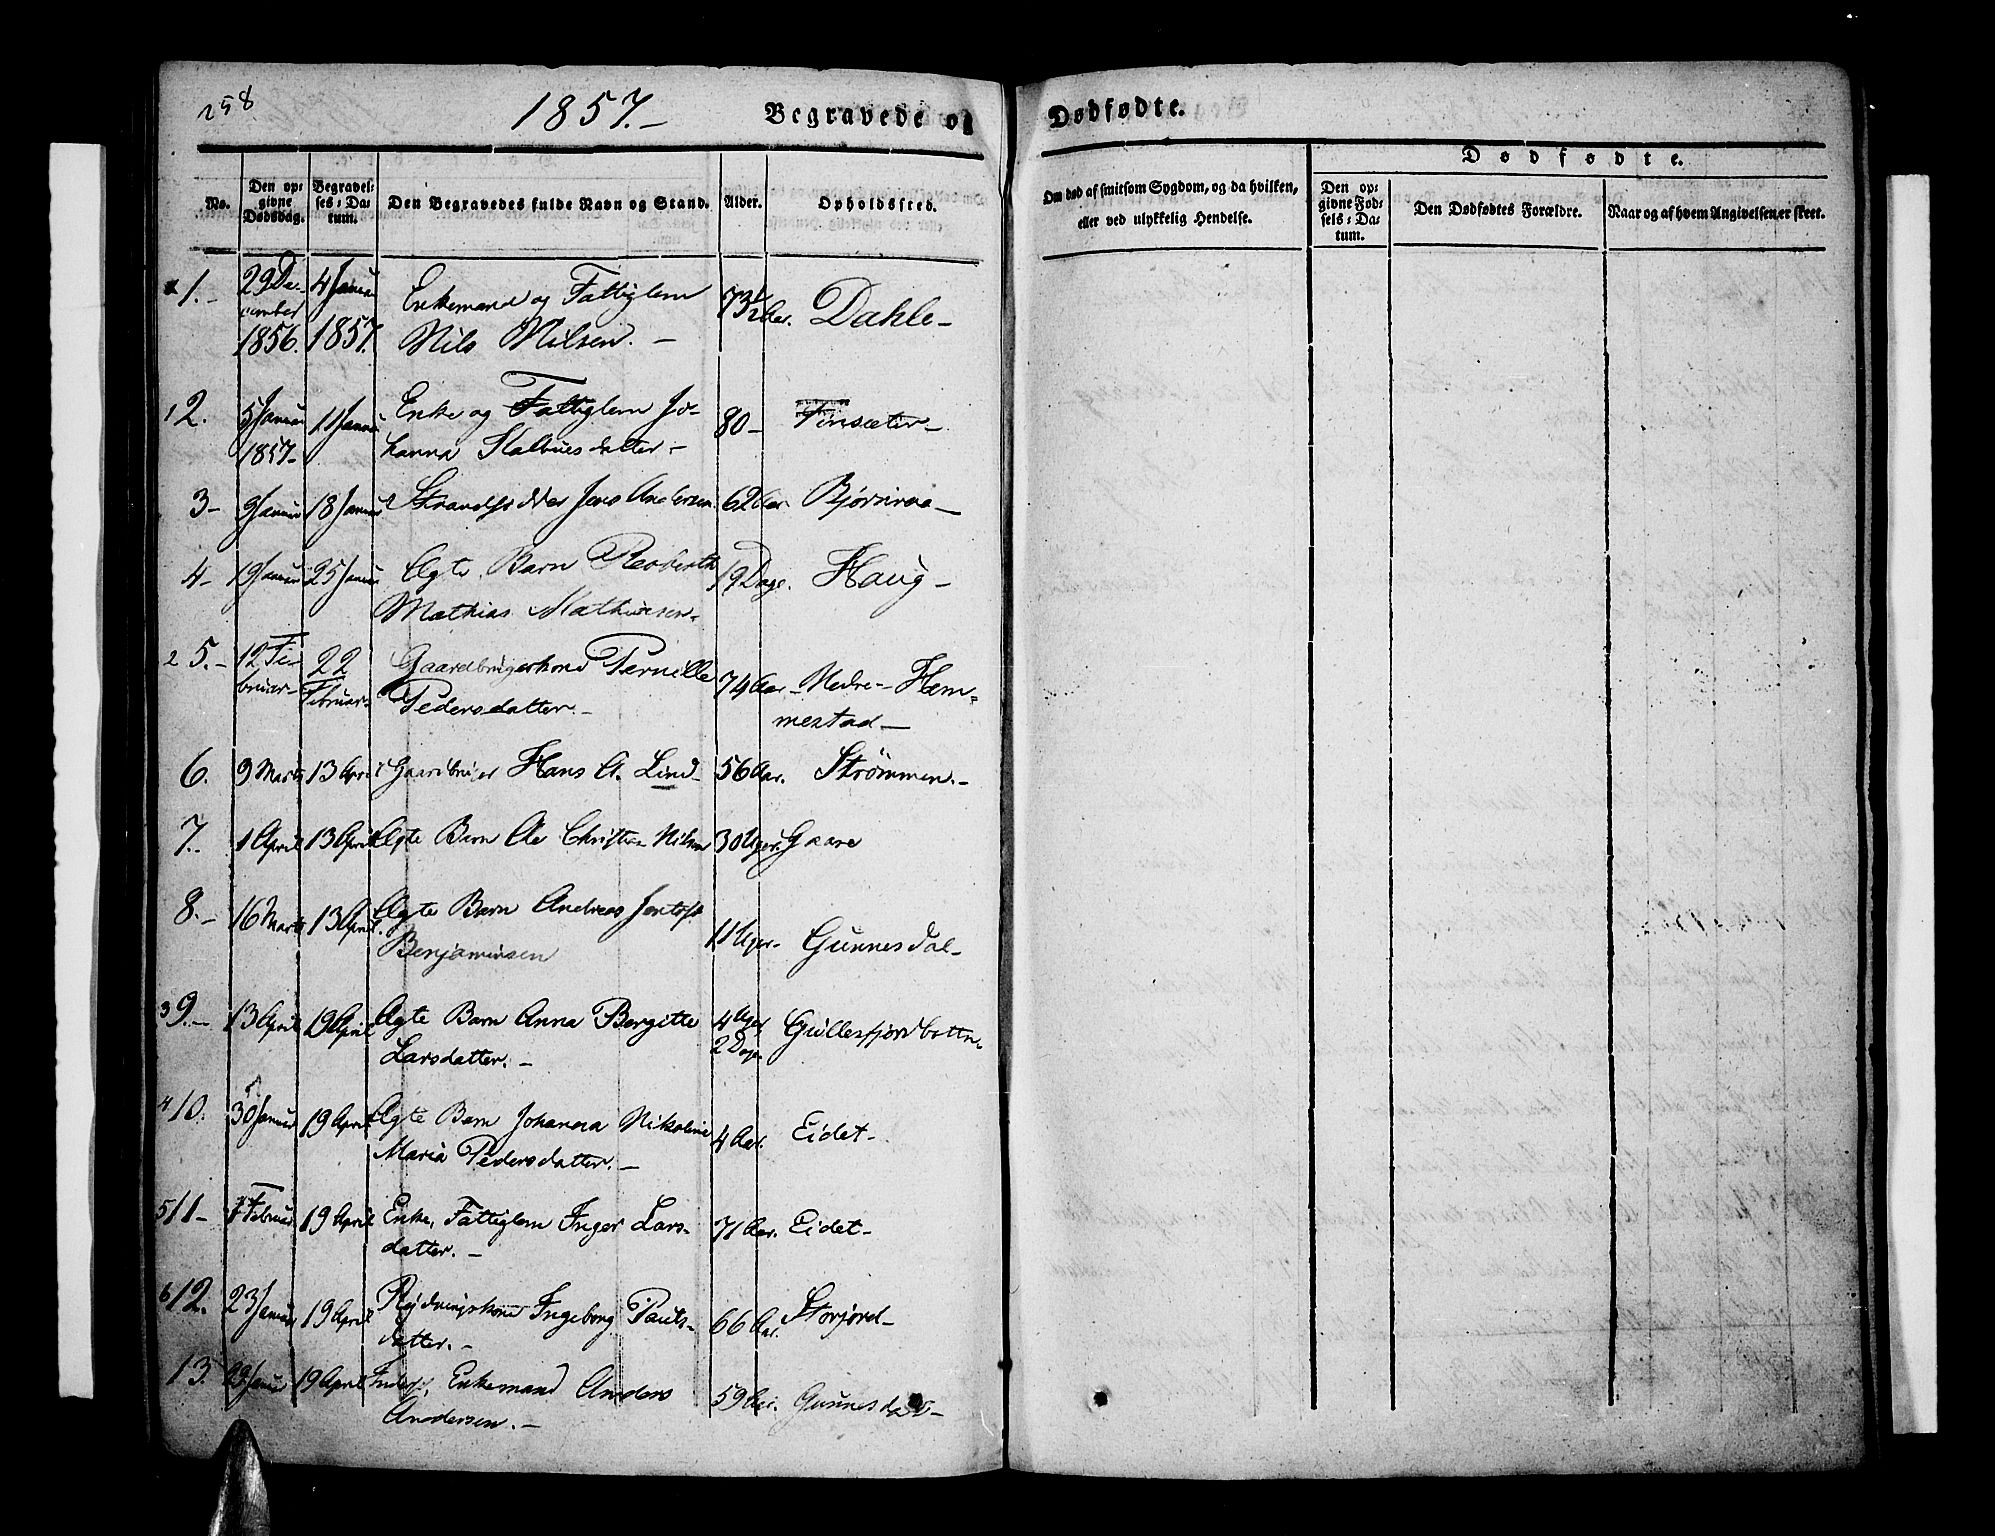 258
1857.-
Begravede og
Dødfødte.
No.
Den opgivne Dødsdag.
Begravelses-Datum.
Den Begravedes fulde Navn og Stand.
Alder.
Opholdssted.
Om død af smitsom Sygdom, og da hvilken, eller ved ulykkelig Hendelse.
Dødfødte.
Den opgivne Fødsels-Datum.
Den Dødfødtes Forældre.
Naar og af hvem Angivelsen er skeet.
1.- 29 December 1856. 4 Januar 1857. Enkemand og Fattiglem
Nils Nilsen.- 73½ Aar. Dahle-
1 2. 5 Januar 1857- 11 Januar Enke og Fattiglem Jo-
hanna Kalbuesdatter.- 80- Finsæter-
3- 9 Januar 18 Januar Strandsidder Jens Andersen 62 Aar. Bjørnraa-
4- 19 Januar 25 Januar Ægte Barn Roberth
Mathias Mathiesen- 19 Dage. Haug-
2 5.- 12 Februar- 22 Februar- Gaardbrugerkone Pernille
Pedersdatter.- 74 Aar- Nedre- Hem-
mestad-
6. 9 Marts 13 April Gaardbruger Hans A. Lind- 56 Aar. Strømmen.-
7.- 1 April 13 April Ægte Barn Christian Nilsen 30 Uger. Gaare
8.- 16 Marts 13 April. Ægte Barn Andreas Jentoft
Benjaminsen 11 Uger- Gunnesdal-
3 9.- 13 April 19 April Ægte Barn Anna Bergitte
Larsdatter.- 4 Uger 2 Dage Gullesfjordbottn-
4 10. 30 Januar 19 April Ægte Barn Johanna Nikoline
Maria Pedersdatter.- 4 Aar. Eidet-
5 11- 1 Februar 19 April Enke, Fattiglem Inger Lars-
datter.- 71 Aar. Eidet-
6 12. 23 Januar 19 April Rydningskone Ingeborg Pauls-
datter.- 66 Aar. Storjord-
13. 29 Januar 19 April Inders, Enkemand Anders
Andersen.- 59 Aar. Gunnesdal-